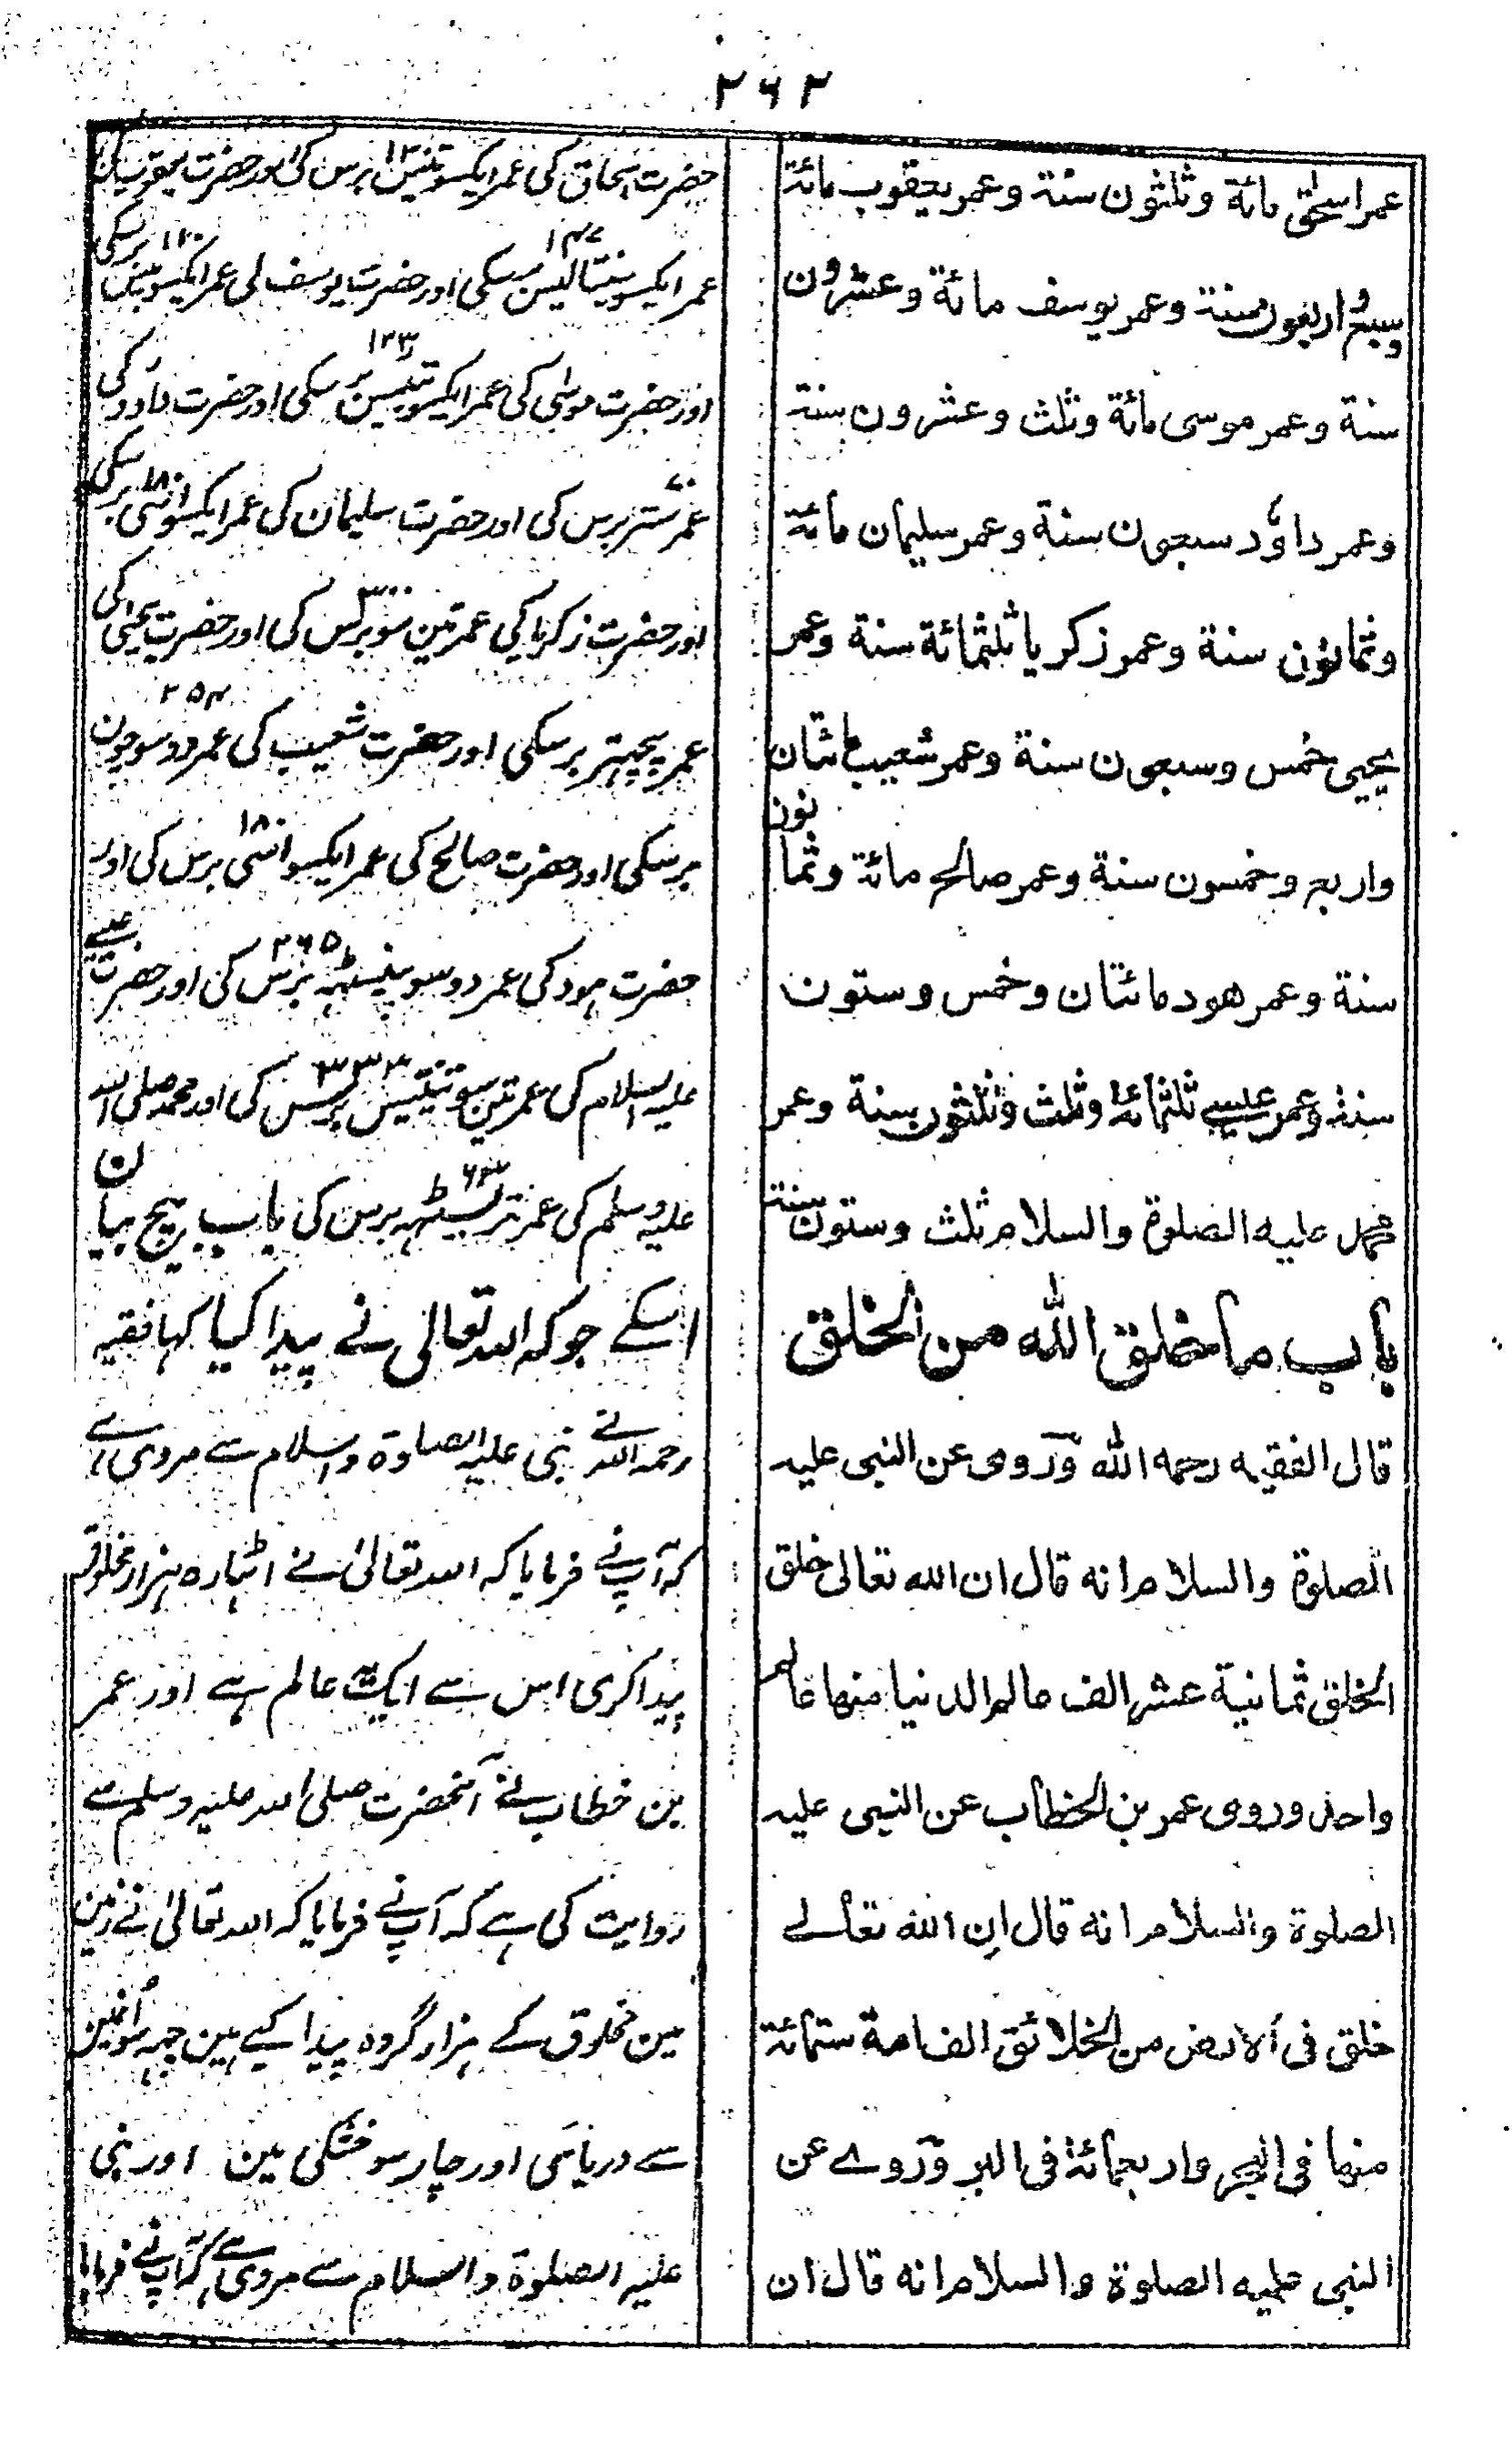 ۲۶۲
عمر اسحٰق مائة وثلثون سنة وعمر يعقوب مائة
وسبع واربعون سنة وعمر يوسف مائة وعشرون
سنة وعمر موسى مائة وثلث وعشرون سنة
وعمر داؤد سبعون سنة وعمر سليمان مائة
وثمانون سنة وعمر زكريا ثلثمائة سنة وعمر
يحيى خمس وسبعون سنة وعمر شعيب مائتان
واربع وخمسون سنة وعمر صالح مائة وثمانون
سنة وعمر هود مائتان وخمس وستون
سنة وعمر عيسے ثلثمائة وثلث وثلثون سنة وعمر
محمد عليه الصلوة والسلام ثلث وستون سنة
باب ما خلق الله من الخلق
قال الفقيه رحمه الله وروى عن النبى عليه
الصلوة والسلام انه قال ان الله تعالى خلق
الخلق ثمانية عشر الف عالم الدنيا منها عالم
واحد وروى عمر بن الخطاب عن النبى عليه
الصلوة والسلام انه قال ان الله تعالے
خلق فى الارض من الخلائق الف امة ستمائة
منها فى البحر واربعمائة فى البر وروے عن
النبى عليه الصلوة والسلام انه قال ان
حضرت اسحاق کی عمر ایکسو تیس ۱۳۰ برس کی اور حضرت یعقوب کی
عمر ایکسو سینتالیس ۱۴۷ برسکی اور حضرت یوسف کی عمر ایکسو بیس ۱۲۰ برسکی
اور حضرت موسٰی کی عمر ایکسو تیئیس ۱۲۳ برسکی اور حضرت داؤد کی
عمر ستر ۷۰ برس کی اور حضرت سلیمان کی عمر ایکسو اسّی ۱۸۰ برسکی
اور حضرت زکریا کی عمر تین سو ۳۰۰ برس کی اور حضرت یحیٰی کی
عمر پچہتر برسکی اور حضرت شعیب کی عمر دو سو چون ۲۵۴
برسکی اور حضرت صالح کی عمر ایکسو اسّی ۱۸۰ برس کی اور
حضرت ہود کی عمر دو سو پینسٹہہ ۲۶۵ برس کی اور حضرت عیسے
علیہ السلام کی عمر تین سو تینتیس ۳۳۳ برس کی اور محمد صلی اللہ
علیہ وسلم کی عمر تریسٹہہ ۶۳ برس کی باب بیچ بیان
اسکے جو کہ اللہ تعالی نے پیدا کیا کہا فقیہ
رحمہ اللہ نے نبی علیہ الصلوۃ والسلام سے مروی ہے
کہ آپ نے فرمایا کہ اللہ تعالیٰ نے اٹہارہ ہزار مخلوق
پیدا کری اس سے ایک عالم ہے اور عمر
بن خطاب نے آنحضرت صلی اللہ علیہ وسلم سے
روایت کی ہے کہ آپ نے فرمایا کہ اللہ تعالیٰ نے زمین
مین مخلوق کے ہزار گروہ پیدا کیے ہین چہہ سو انمین
سے دریائی اور چار سو خشکی مین اور نبی
علیہ الصلوۃ والسلام سے مروی ہے کہ آپ نے فرمایا